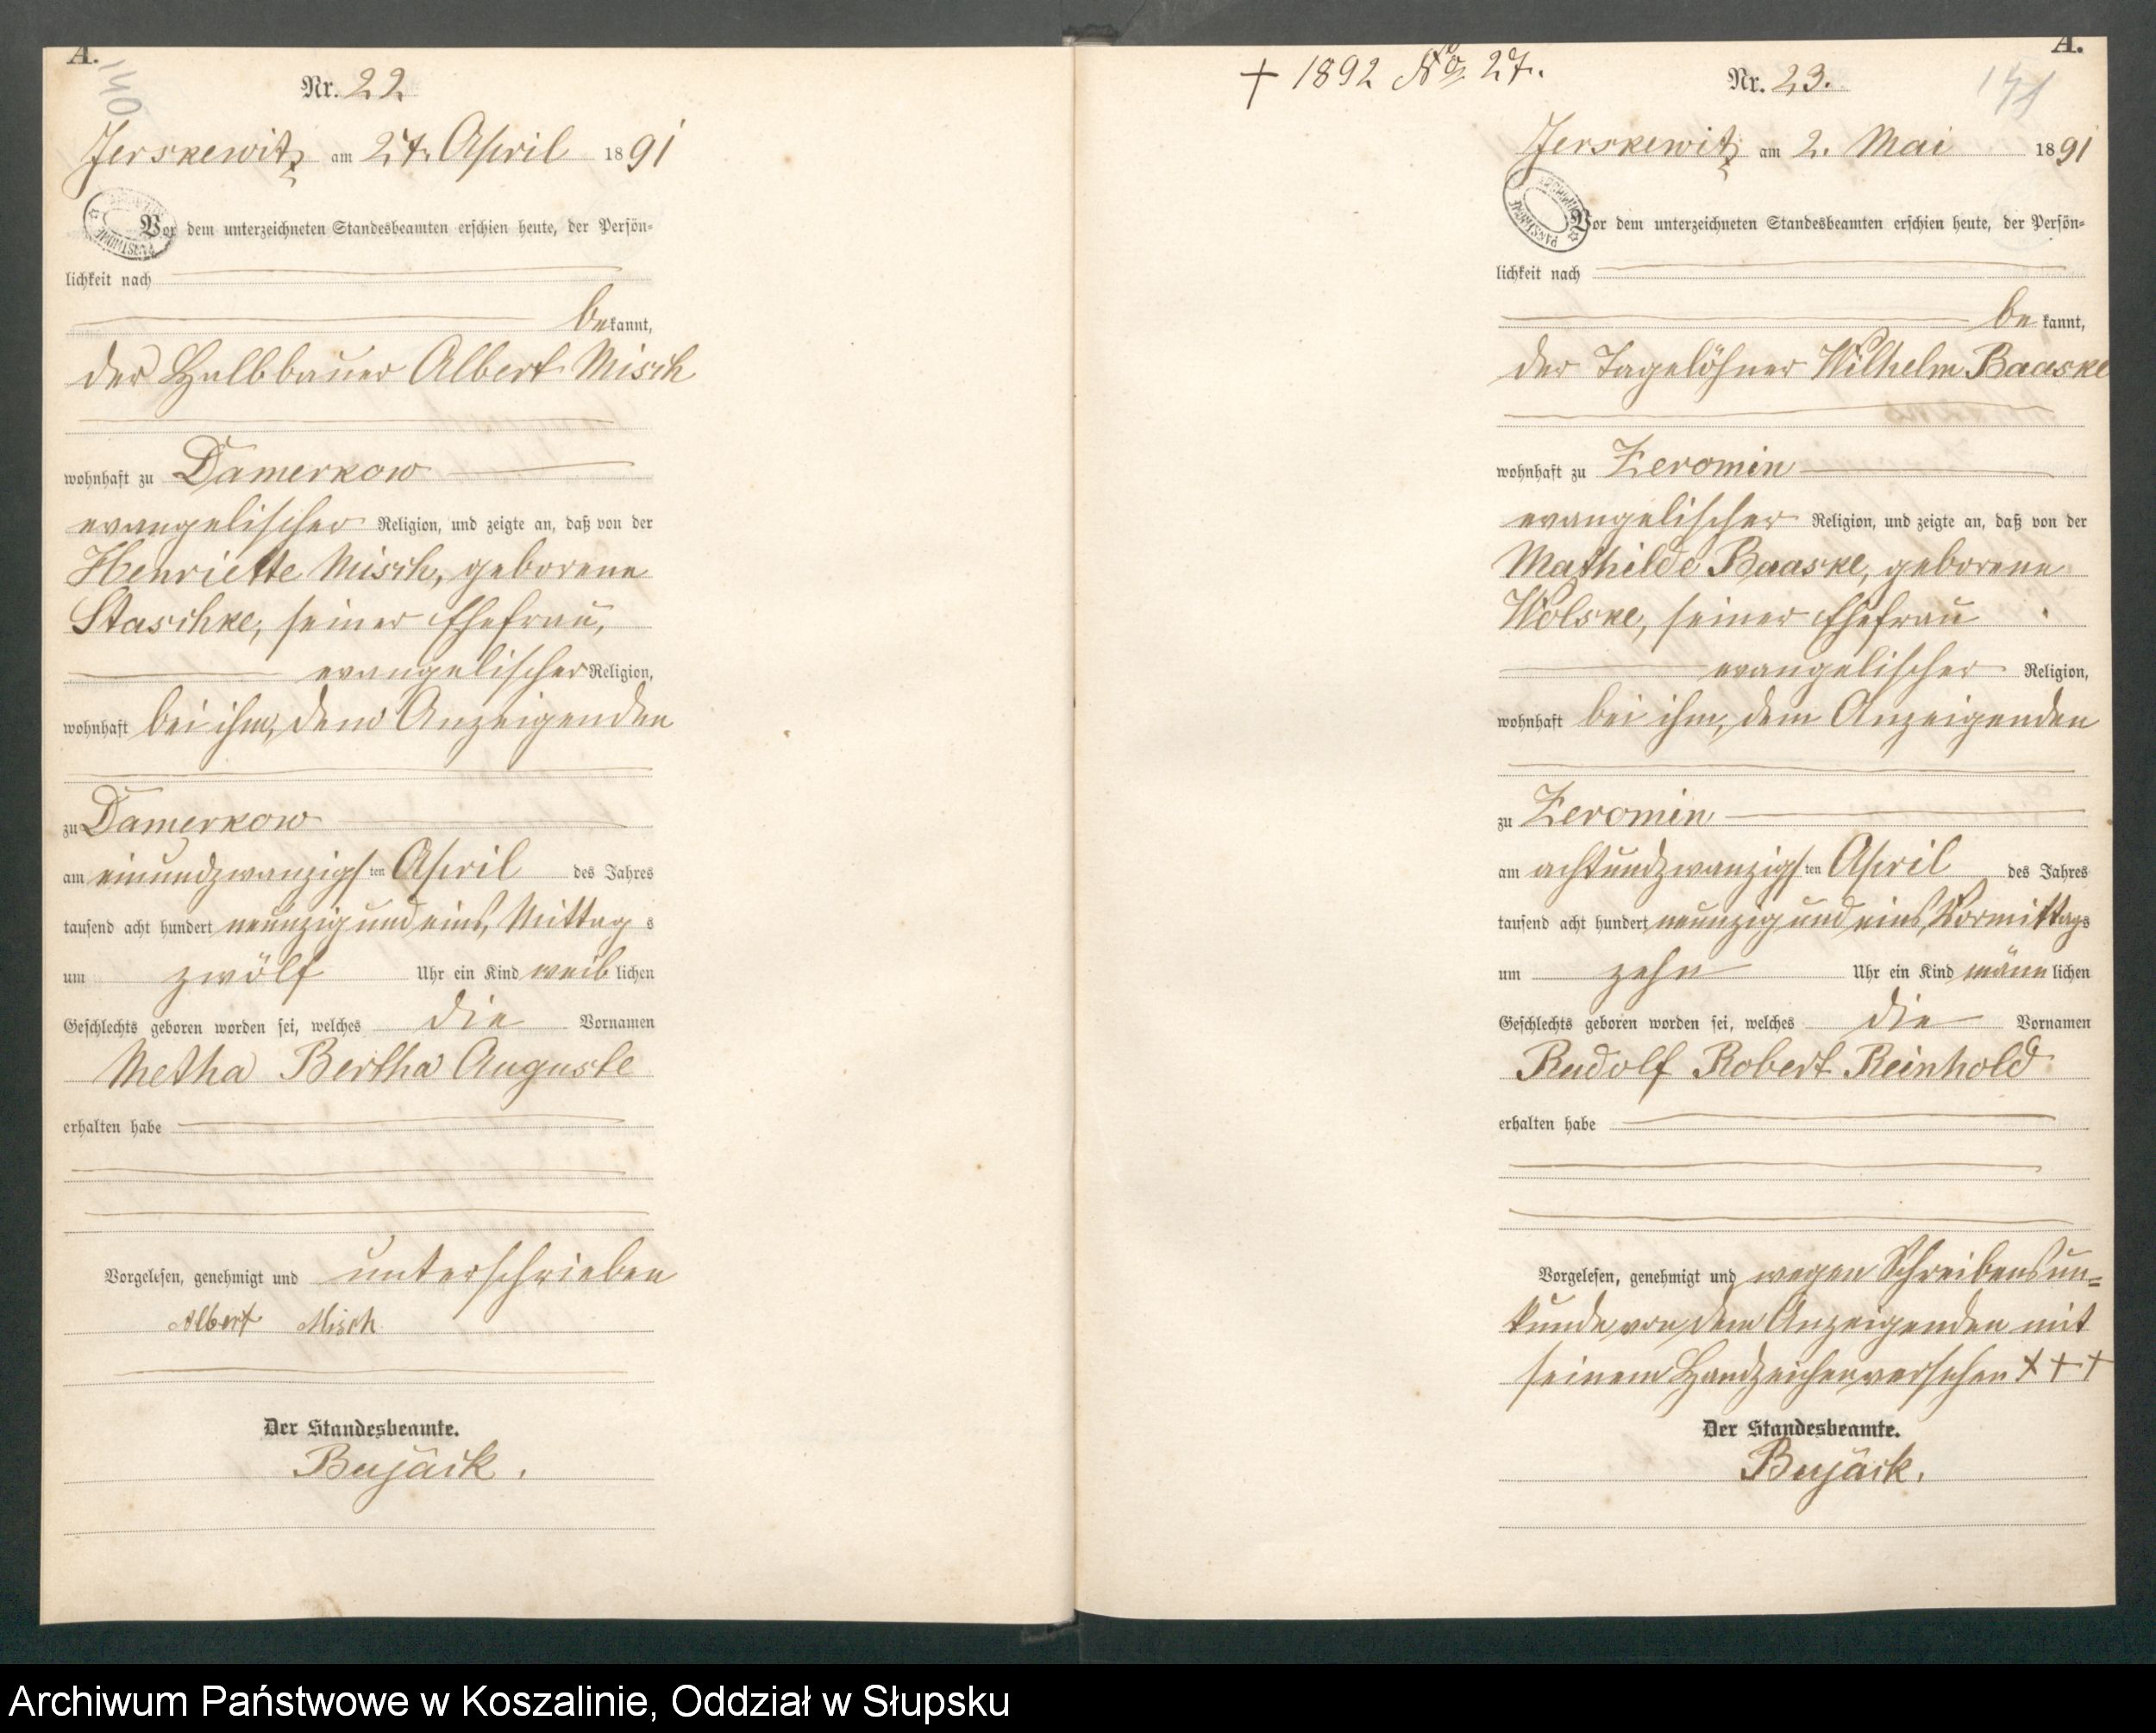 A.
140
Nr. 22
Jerskewitz am 27. April 1891
Vor dem unterzeichneten Standesbeamten erschien heute, der Persön-
lichkeit nach
bekannt,
der Halbbauer Albert Misch
wohnhaft zu Damerkow
evangelischer Religion, und zeigte an, daß von der
Henriette Misch, geborene
Staschke, seiner Ehefrau,
evangelischer Religion,
wohnhaft bei ihm, dem Anzeigenden
zu Damerkow
am einundzwanzigsten April des Jahres
tausend acht hundert neunzig und eins, Mittags
um zwölf Uhr ein Kind weiblichen
Geschlechts geboren worden sei, welches die Vornamen
Metha Bertha Auguste
erhalten habe
Vorgelesen, genehmigt und unterschrieben
Albert Misch
Der Standesbeamte.
Bujäck.
A.
+ 1892 No. 27.
Nr. 23.
141
Jerskewitz am 2. Mai 1891
Vor dem unterzeichneten Standesbeamten erschien heute, der Persön-
lichkeit nach
bekannt,
der Tagelöhner Wilhelm Baaske
wohnhaft zu Zeromin
evangelischer Religion, und zeigte an, daß von der
Mathilde Baaske, geborene
Wolske, seiner Ehefrau
evangelischer Religion,
wohnhaft bei ihm, dem Anzeigenden
zu Zeromin
am achtundzwanzigsten April des Jahres
tausend acht hundert neunzig und eins, Vormittags
um zehn Uhr ein Kind männlichen
Geschlechts geboren worden sei, welches die Vornamen
Rudolf Robert Reinhold
erhalten habe
Vorgelesen, genehmigt und wegen Schreibensun=
kunde von dem Anzeigenden mit
seinem Handzeichen versehen + + +
Der Standesbeamte.
Bujäck.
Archiwum Państwowe w Koszalinie, Oddział w Słupsku